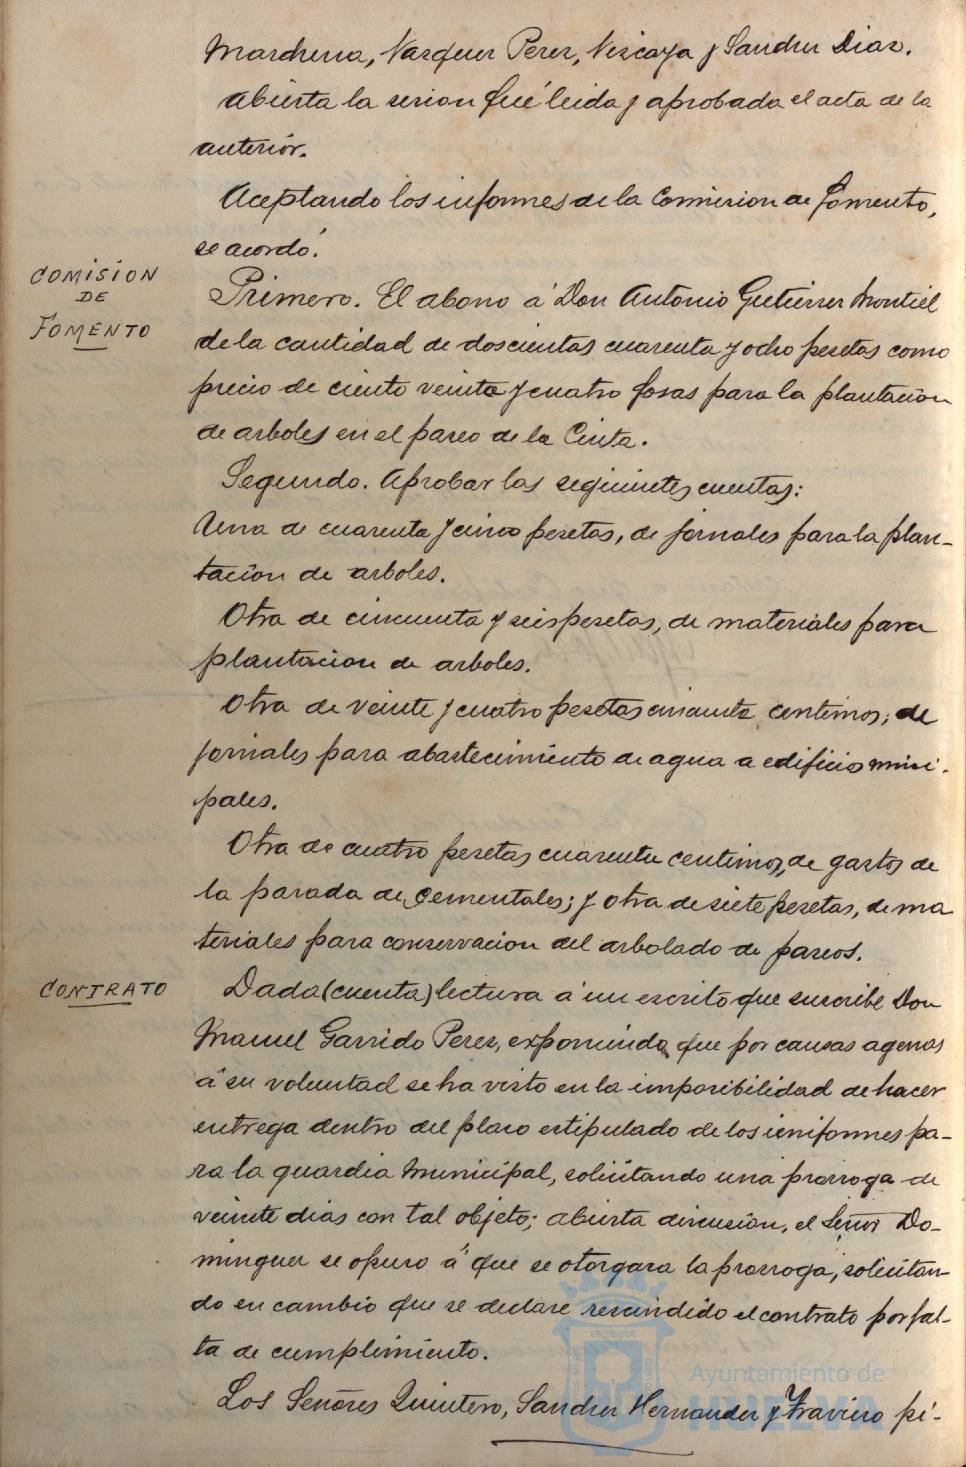 Marchena, Vazquez Perez, Vizcaya y Sanchez Diaz.
Abierta la sesion fué leida y aprobada el acta de la
anteriór.
Aceptando los informes de la Comision de Fomento,
se acordó.
COMISION
DE
FOMENTO
Primero. El abono á Don Antonio Gutierrez Montiel
de la cantidad de doscientas cuarenta y ocho pesetas como
precio de ciento veinte y cuatro fosas para la plantacion
de arboles en el paseo de la Cinta.
Segundo. Aprobar las seguientes cuentas:
Una de cuarenta y cinco pesetas, de jornales para la plan-
tación de arboles.
Otra de cincuenta y seis pesetas, de materiales para
plantacion de arboles.
Otra de veinte y cuatro pesetas cincuenta centimos, de
jornales para abastecimiento de agua a edificios muni-
pales.
Otra de cuatro pesetas cuarenta centimos, de gastos de
la parada de cementales; y otra de siete pesetas, de ma
teriales para conservacion del arbolado de paseos.
CONTRATO
Dada (cuenta) lectura á un escrito que suscribe Don
Manuel Garrido Perez, exponiendo que por causas agenas
á su voluntad se ha visto en la imposibilidad de hacer
entrega dentro del plazo estipulado de los uniformes pa-
ra la guardia Municipal, solicitando una prorroga de
veinte dias con tal objeto; abierta discusión, el Señor Do-
minguez se opuso á que se otorgara la prorroga, solicitan-
do en cambio que se declare rescindido el contrato por fal-
ta de cumplimiento.
Los Señores Quintero, Sanchez Hernandez y Traviero pi-
Ayuntamiento de
HUELVA